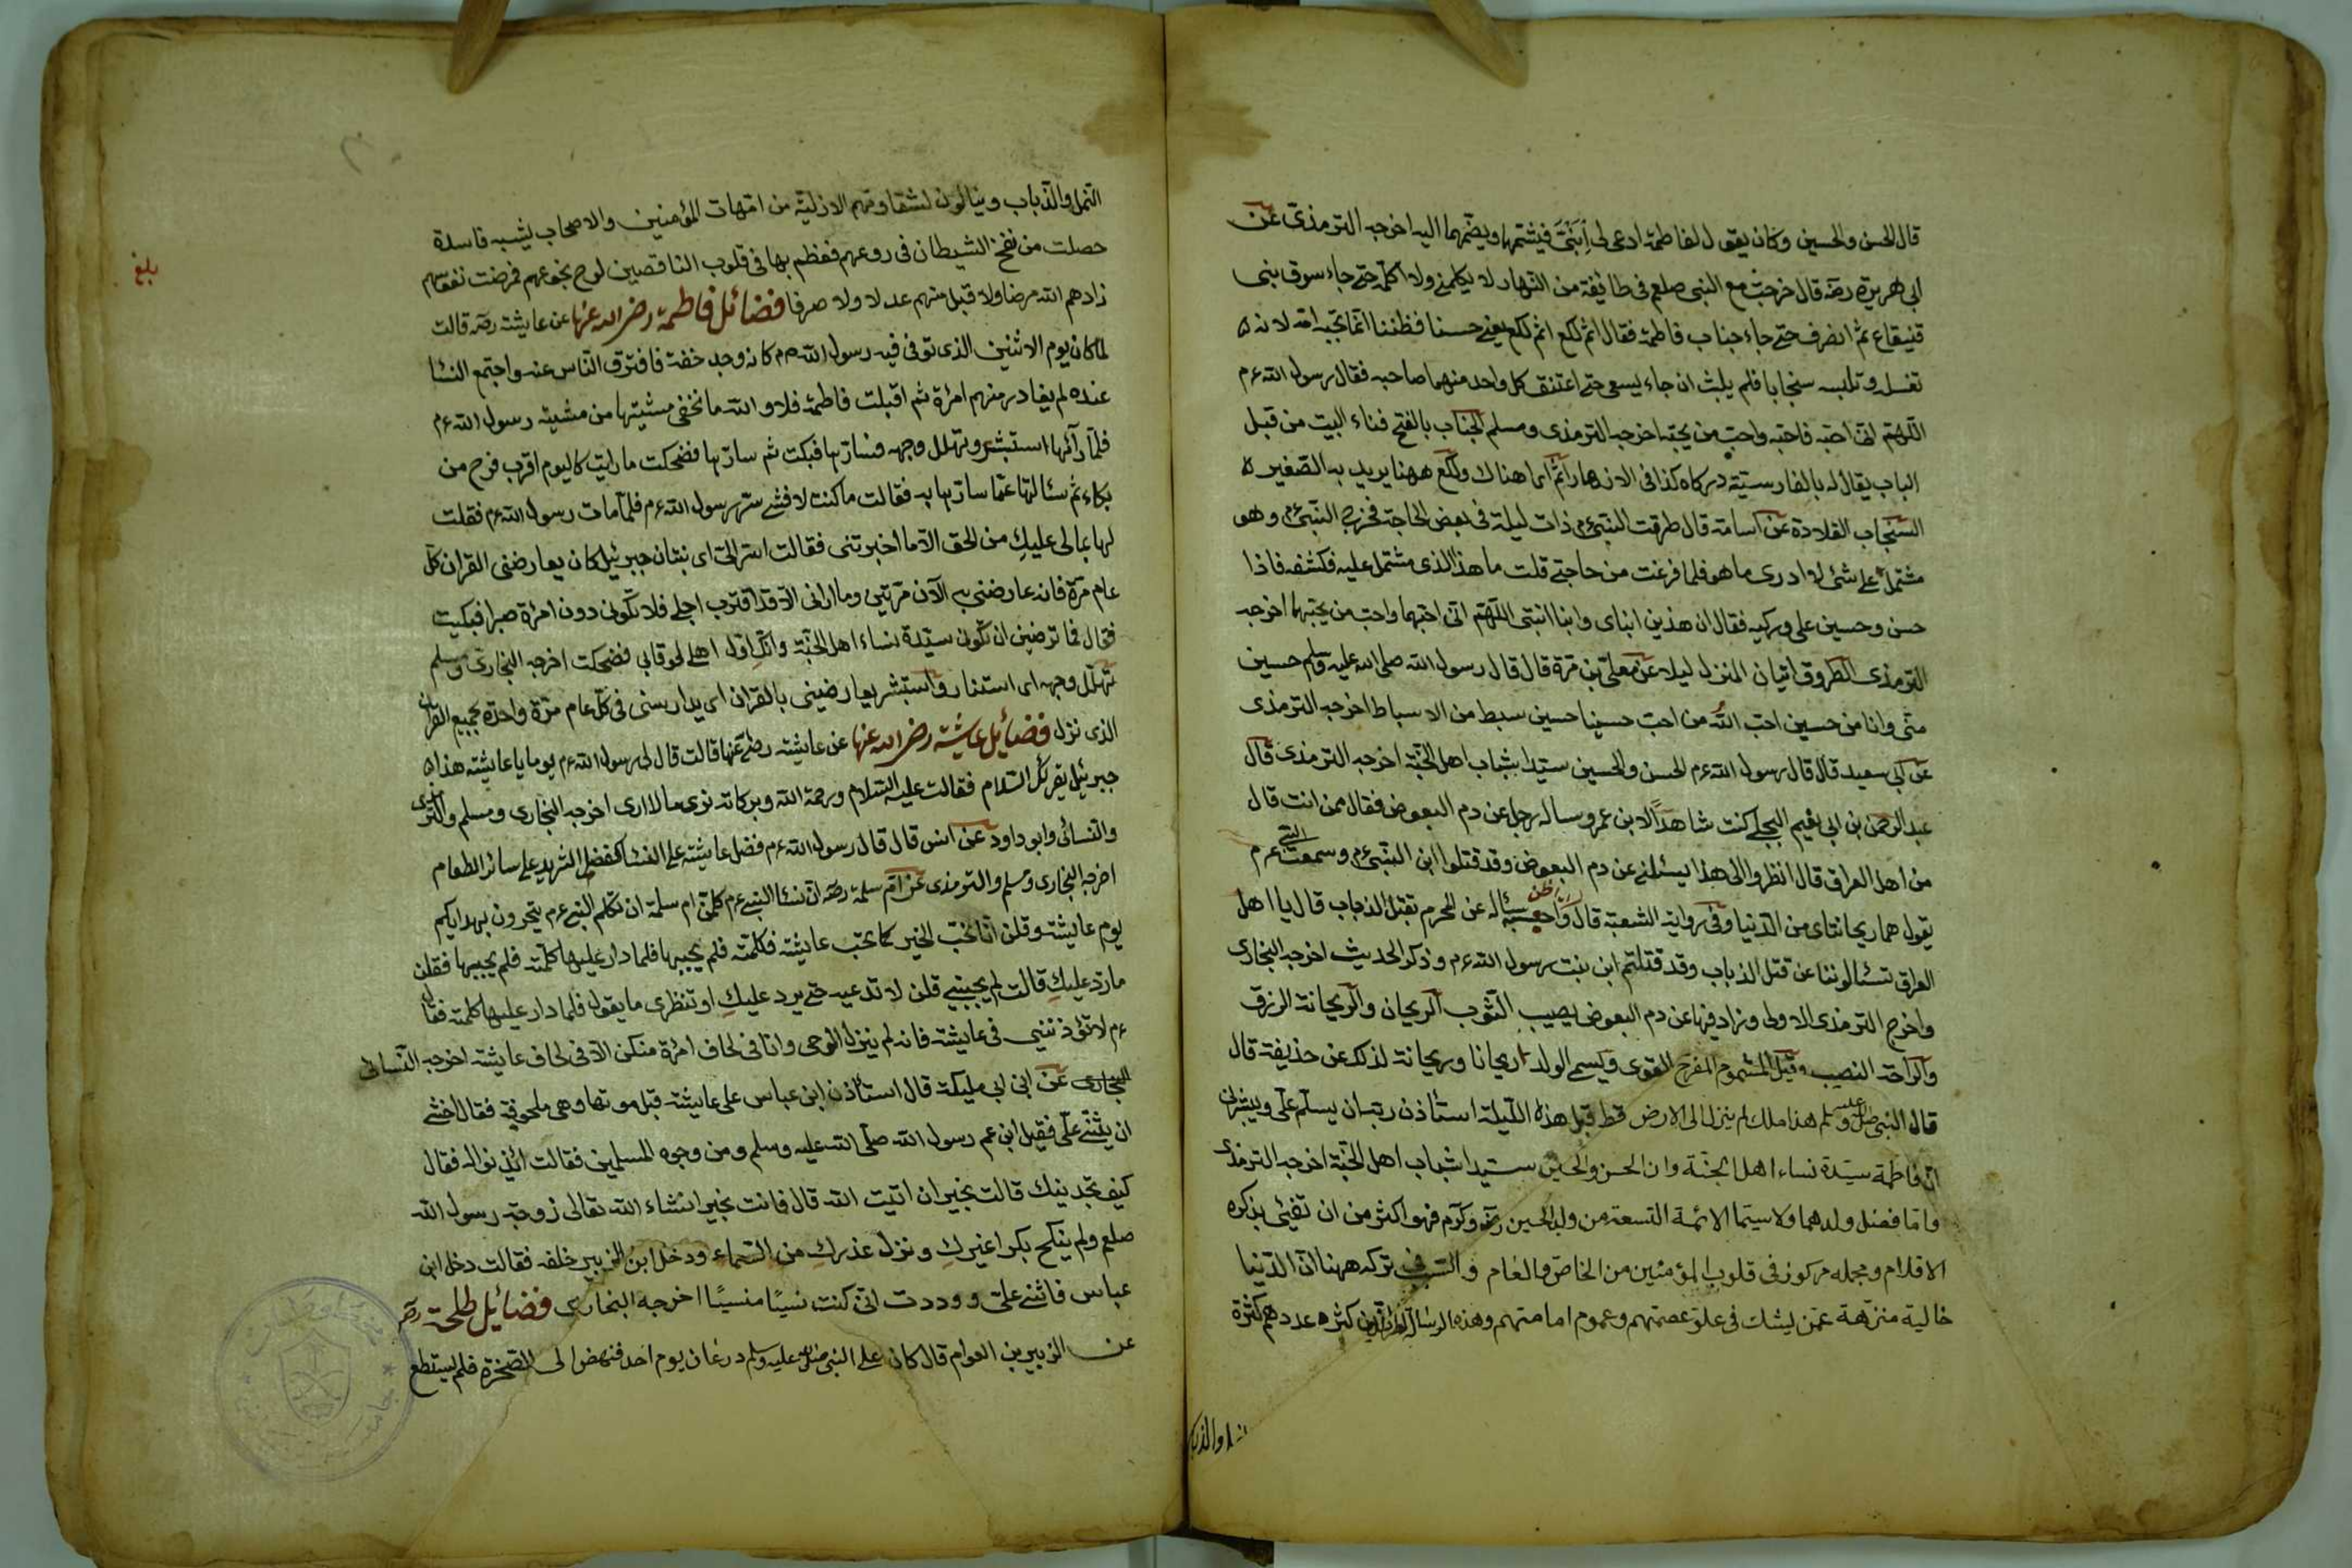 قال الحسن والحسين وكان يقول لفاطمة ادعى لى اِبنَىَّ فيشتمهما ويضمهما اليه اخرجه الترمذى عن
ابى هريرة رضه قال خرجت مع النبى صلعم فى طائفة من النهار لا يكلمنى ولا اكلمه حتى جاء سوق بنى
قنيقاع ثم انصرف حتى جاء جناب فاطمة فقال اثم لكع اثم لكع يعنى حسنا فظننا انما تحبه امه لانه
تغسله وتلبسه سنجابا فلم يلبث ان جاء يسعى حتى اعتنق كل واحد منهما صاحبه فقال رسول الله ءم
اللهم انى احبه فاحبه واحب من يحبه اخرجه الترمذى ومسلم الجناب بالفتح فناء البيت من قبل
الباب يقال له بالفارسية دركاه كذا فى الازهار اثم اى اهناك ولكع ههنا يريد به الصغير
السنجاب القلادة عن اسامة قال طرقت النبى ءم ذات ليلة فى بعض الحاجة فخرج النبى ءم وهو
مشتمل على شئ لا ادرى ما هو فلما فرغت من حاجتى قلت ما هذا الذى مشتمل عليه فكشفه فاذا
حسن وحسين على وركيه فقال ان هذين ابناى وابنا ابنتى اللهم انى احبهما واحب من يحبهما اخرجه
الترمذى الطروق اتيان المنزل ليلا عن معلى بن مرة قال قال رسول الله صلى الله عليه وسلم حسين
منى وانا من حسين احب الله من احب حسينا حسين سبط من الاسباط اخرجه الترمذى
عن ابى سعيد قال قال رسول الله ءم الحسن والحسين سيدا شباب اهل الجنة اخرجه الترمذى قال
عبد الرحمن بن ابى نعيم البجلى كنت شاهدًا لابن عمر وساله رجل عن دم البعوض فقال ممن انت قال
من اهل العراق قال انظروا الى هذا يسئلنى عن دم البعوض وقد قتلوا ابن النبى ءم وسمعت النبى ءم
يقول هما ريحانتاى من الدنيا وفى رواية الشعبة قال واحسبه سئاله عن المحرم يقتل الذباب قال يا اهل
العراق تسئالوننا عن قتل الذباب وقد قتلتم ابن بنت رسول الله ءم وذكر الحديث اخرجه البخارى
واخرج الترمذى الاولى وزاد فيها عن دم البعوض يصيب الثوب الريحان والريحانة الرزق
والراحة النصيب وقيل المشموم المفرح القوى ويسمى الولد ريحانا وريحانة لذلك عن حذيفة قال
قال النبى صلى الله عليه وسلم هذا ملك لم ينزل الى الارض قط قبل هذه الليلة استأذن ربه ان يسلم على ويبشرنى
ان فاطمة سيدة نساء اهل الجنة وان الحسن والحسين سيدا شباب اهل الجنة اخرجه الترمذى
واما فضل ولدهما ولا سيما الائمة التسعة من ولد الحسين رضه وكرم فهو اكثر من ان تفئى بذكره
الاقلام ومجمله مركوز فى قلوب المؤمنين من الخاص والعام والسبب فى تركه ههنا ان الدنيا
خالية منزهة عمن يشك فى علو عصمتهم وعموم امامتهم وهذه الرسالة كثرة عددهم كثرة
النمل والذباب
النمل والذباب وينالون لشقاوتهم الازلية من امهات المؤمنين والاصحاب بشبه فاسدة
حصلت من نفخ الشيطان فى روعهم فعظم بها فى قلوب الناقصين فمرضت نفوسهم
زادهم الله مرضا ولا قبل منهم عدلا ولا صرفا فضائل فاطمة رضى الله عنها عن عايشة رضه قالت
لما كان يوم الاثنين الذى توفى فيه رسول الله ءم كانه وجد خفة فافترق الناس عنه واجتمع النسا
عنده لم يغادر منهم امرأة ثم اقبلت فاطمة فلا والله ما تخفى مشيتها من مشية رسول الله ءم
فلما رآئها استبشر وتهلل وجهه فسارّها فبكت ثم سارّها فضحكت ما رايت كاليوم اقرب فرح من
بكاء ثم سئالتها عما سارّها به فقالت ما كنت لافشى سرّ رسول الله ءم فلما مات رسول الله ءم فقلت
لها بما لى عليكِ من الحق الا ما اخبرتنى فقالت اسر الى ان جبرئيل كان يعارضنى القران كل
عام مرة فانه عارضنى به الآن مرتين وما ارانى الا قد اقترب اجلى فلا تكونى دون امرأة صبرا فبكيت
فقال فما ترضين ان تكون سيدة نساء اهل الجنة وانكِ اول اهلى لحوقا بى فضحكت اخرجه البخارى ومسلم
تهلل وجهه اى استنار واستبشر يعارضنى بالقران اى يدارسنى فى كل عام مرة واحدة بجميع القران
الذى نزل فضائل عايشة رضى الله عنها عن عايشة رضى عنها قالت قال لى رسول الله ءم يوما يا عايشة هذا
جبرئيل يقرئك السلام فقالت عليه السلام ورحمة الله وبركاته ترى ما لا ارى اخرجه البخارى ومسلم والترمذى
والنسائى وابو داود عن انس قال قال رسول الله ءم فضل عايشة على النسا كفضل الثريد على سائر الطعام
اخرجه البخارى ومسلم والترمذى عن ام سلمة رضه ان نسا النبى ءم كلمن ام سلمة ان تكلم النبى ءم يتحرون بهداياكم
يوم عايشة وقلن انا نحب الخير كما تحب عايشة فكلمته فلم يجيبها فلما دار عليها كلمته فلم يجيبها فقلن
ما ردّ عليكِ قالت لم يجيبنى قلن لا تدعيه حتى يرد عليكِ او تنظرى ما يقول فلما دار عليها كلمته فقال
ءم لا تؤذيننى فى عايشة فانه لم ينزل الوحى وانا فى لحاف امرأة منكن الا فى لحاف عايشة اخرجه النسائى
البخارى عن ابن ابى مليكة قال استأذن ابن عباس على عايشة قبل موتها وهى فقال اخشى
ان يثنى علىّ فقيل ابن عم رسول الله صلى الله عليه وسلم ومن وجوه المسلمين فقالت ائذنوا له فقال
كيف تجدينك قالت بخير ان اتيت الله قال فانت بخير انشاء الله تعالى زوجة رسول الله
صلعم ولم ينكح بكرا غيركِ ونزل عذركِ من السماء ودخل ابن الزبير خلفه فقالت دخل ابن
عباس فاثنى على ووددت انى كنت نسيًا منسيًا اخرجه البخارى فضائل طلحة رضه
عن الزبير بن العوام قال كان على النبى صلى الله عليه وسلم درعان يوم احد فنهض الى الصخرة فلم يستطع
بلغ